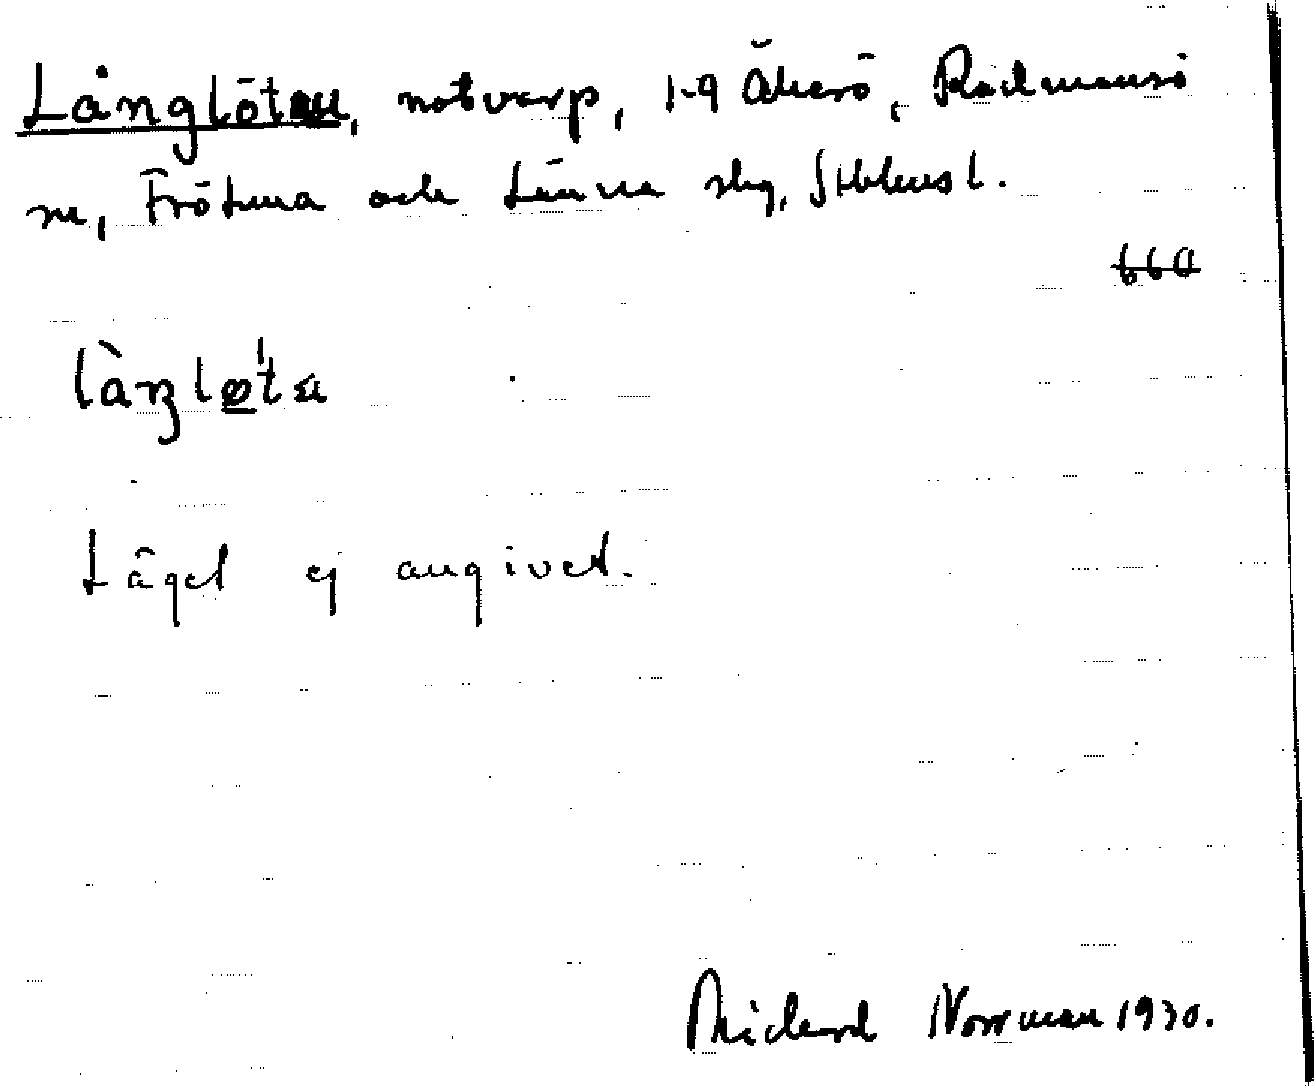 Långlöten, notvarp, 1-9 Äkerö, Rådmansö
sn, Frötuna och Länna slg, Sthlms l.
660
làŋlø̱'ta
Läget ej angivet.
Richard Norrman 1930.